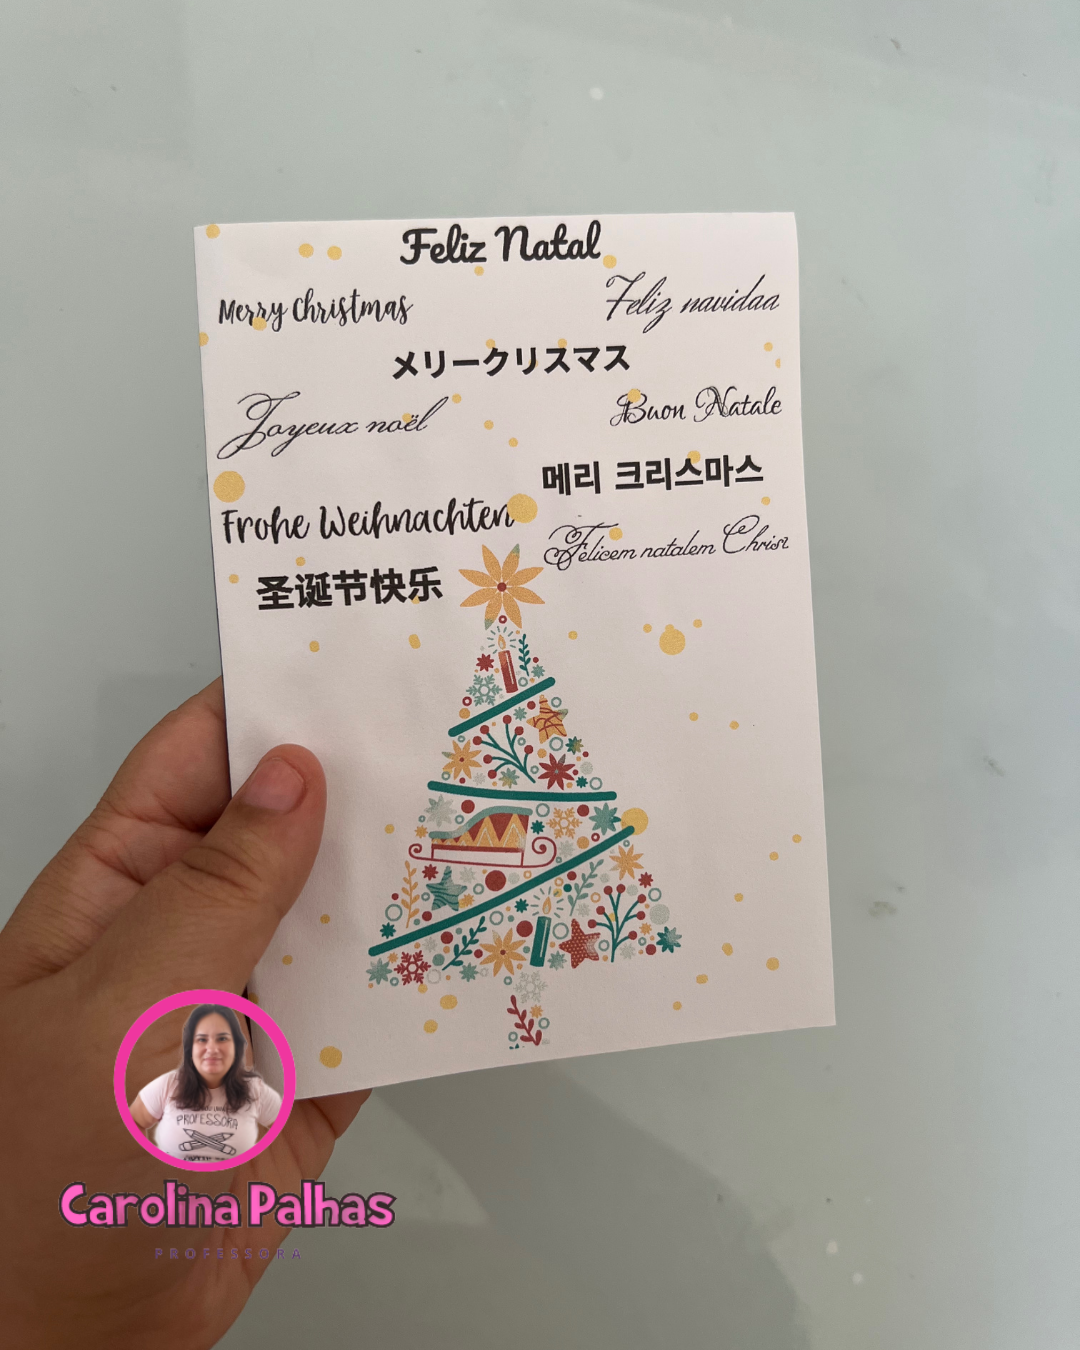 Feliz Natal
Merry Christmas
Feliz navidaa
メリークリスマス
Joyeux noël
Buon Natale
메리 크리스마스
Frohe Weihnachten
Felicem natalem Christ
圣诞节快乐
PROFESSORA
Carolina Palhas
PROFESSORA